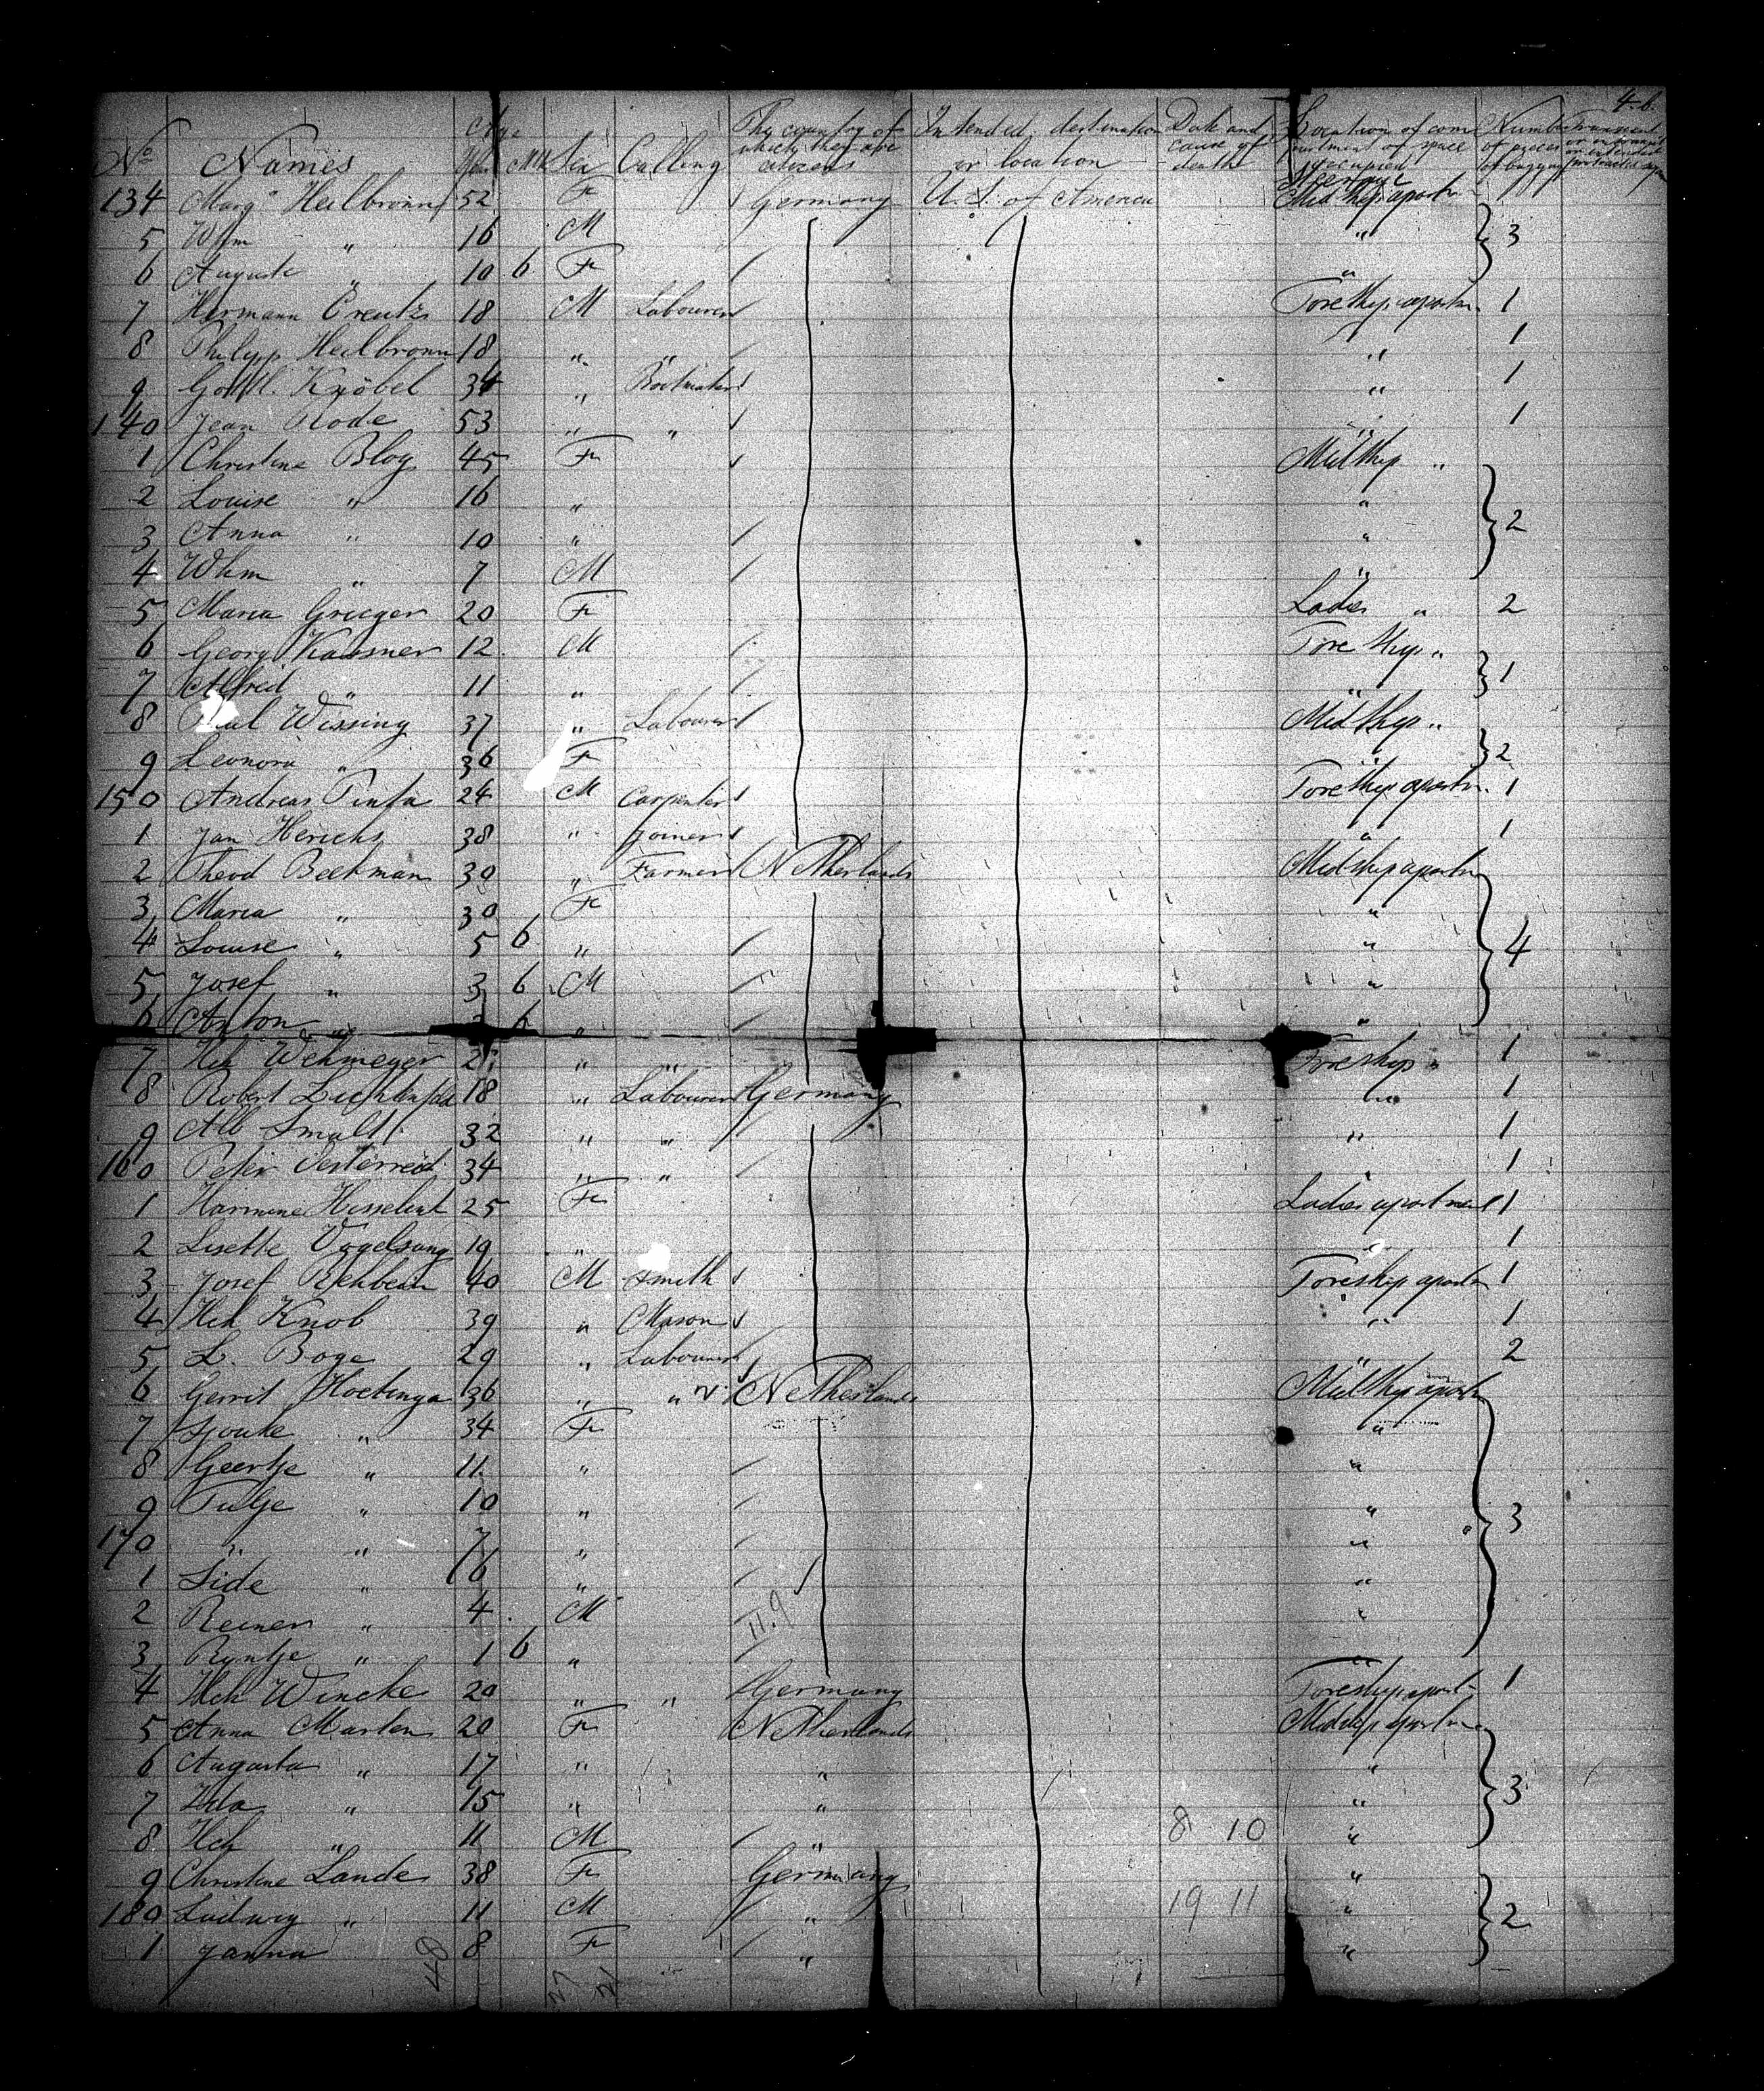 4-6.
No Names Age Years Mth Sex Calling The country of which they are citizens Intended destination or location Date and cause of death Location of compartment of space occupied Number of pieces of baggage Transient
Steerage
134 Marg. Heilbronn 52 F Germany U. S. of America Midship apartm
5 Whm " 16 M " 3
6 Auguste " 10 6 F "
7 Hermann Creutz 18 M Labourer Foreship apartm. 1
8 Philipp Heilbronn 18 " " " 1
9 Gottl. Knöbel 34 " Bootmaker " 1
140 Jean Rode 53 " " " 1
1 Christine Blog 45 F Midship "
2 Louise " 16 " "
3 Anna " 10 " " 2
4 Whm " 7 M "
5 Maria Grieger 20 F Ladies " 2
6 Georg Kassner 12 M Foreship "
7 Alfred " 11 " " 1
8 Paul Wissing 37 " Labourer Midship "
9 Leonora " 36 F " 2
150 Andreas Pinta 24 M Carpenter Foreship apartm. 1
1 Jan Herichs 38 " Joiner " 1
2 Theod Beekman 30 " Farmer Netherlands Midship apartm
3 Maria " 30 F "
4 Louise " 5 6 " " 4
5 Josef " 3 6 M "
6 Anton " 6 " "
7 Hch Wehmeyer " " Foreship " 1
8 Robert Lichtenfeld 18 " Labourer Germany " 1
9 Alb Smalt 32 " " " 1
160 Peter Oesterreich 34 " " 1
1 Harmine Hesselink 25 F Ladies apartment 1
2 Lisette Vogelsang 19 " 1
3 Josef Rehbein 40 M Smith Foreship apartm 1
4 Hch Knob 39 " Mason " 1
5 L. Boge 29 " Labourer " 2
6 Gerrit Hoekinga 36 " " Netherlands Midship apartm
7 Sjouke " 34 F "
8 Geertje " 11 " "
9 Tultje " 10 " " 3
170 " " 7 " "
1 Side " 6 " "
2 Reiner " 4 M "
3 Ryntje " 1 6 "
4 Hch Wincke 20 " " Germany Foreship apartm 1
5 Anna Marten 20 F Netherlands Midship apartm
6 Augusta " 17 " " "
7 Ida " 15 " " " 3
8 Hch " 11 M " 8 10 "
9 Christine Lande 38 F Germany "
180 Ludwig " 11 M " 19 11 " 2
1 Janna 8 F " "